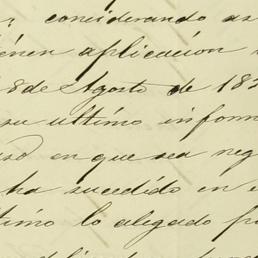 considerando as
tienen aplicacion
8 de Agosto de 18
su ultimo inform
en que sea neg
ha sucedido en e
timo lo alegado p